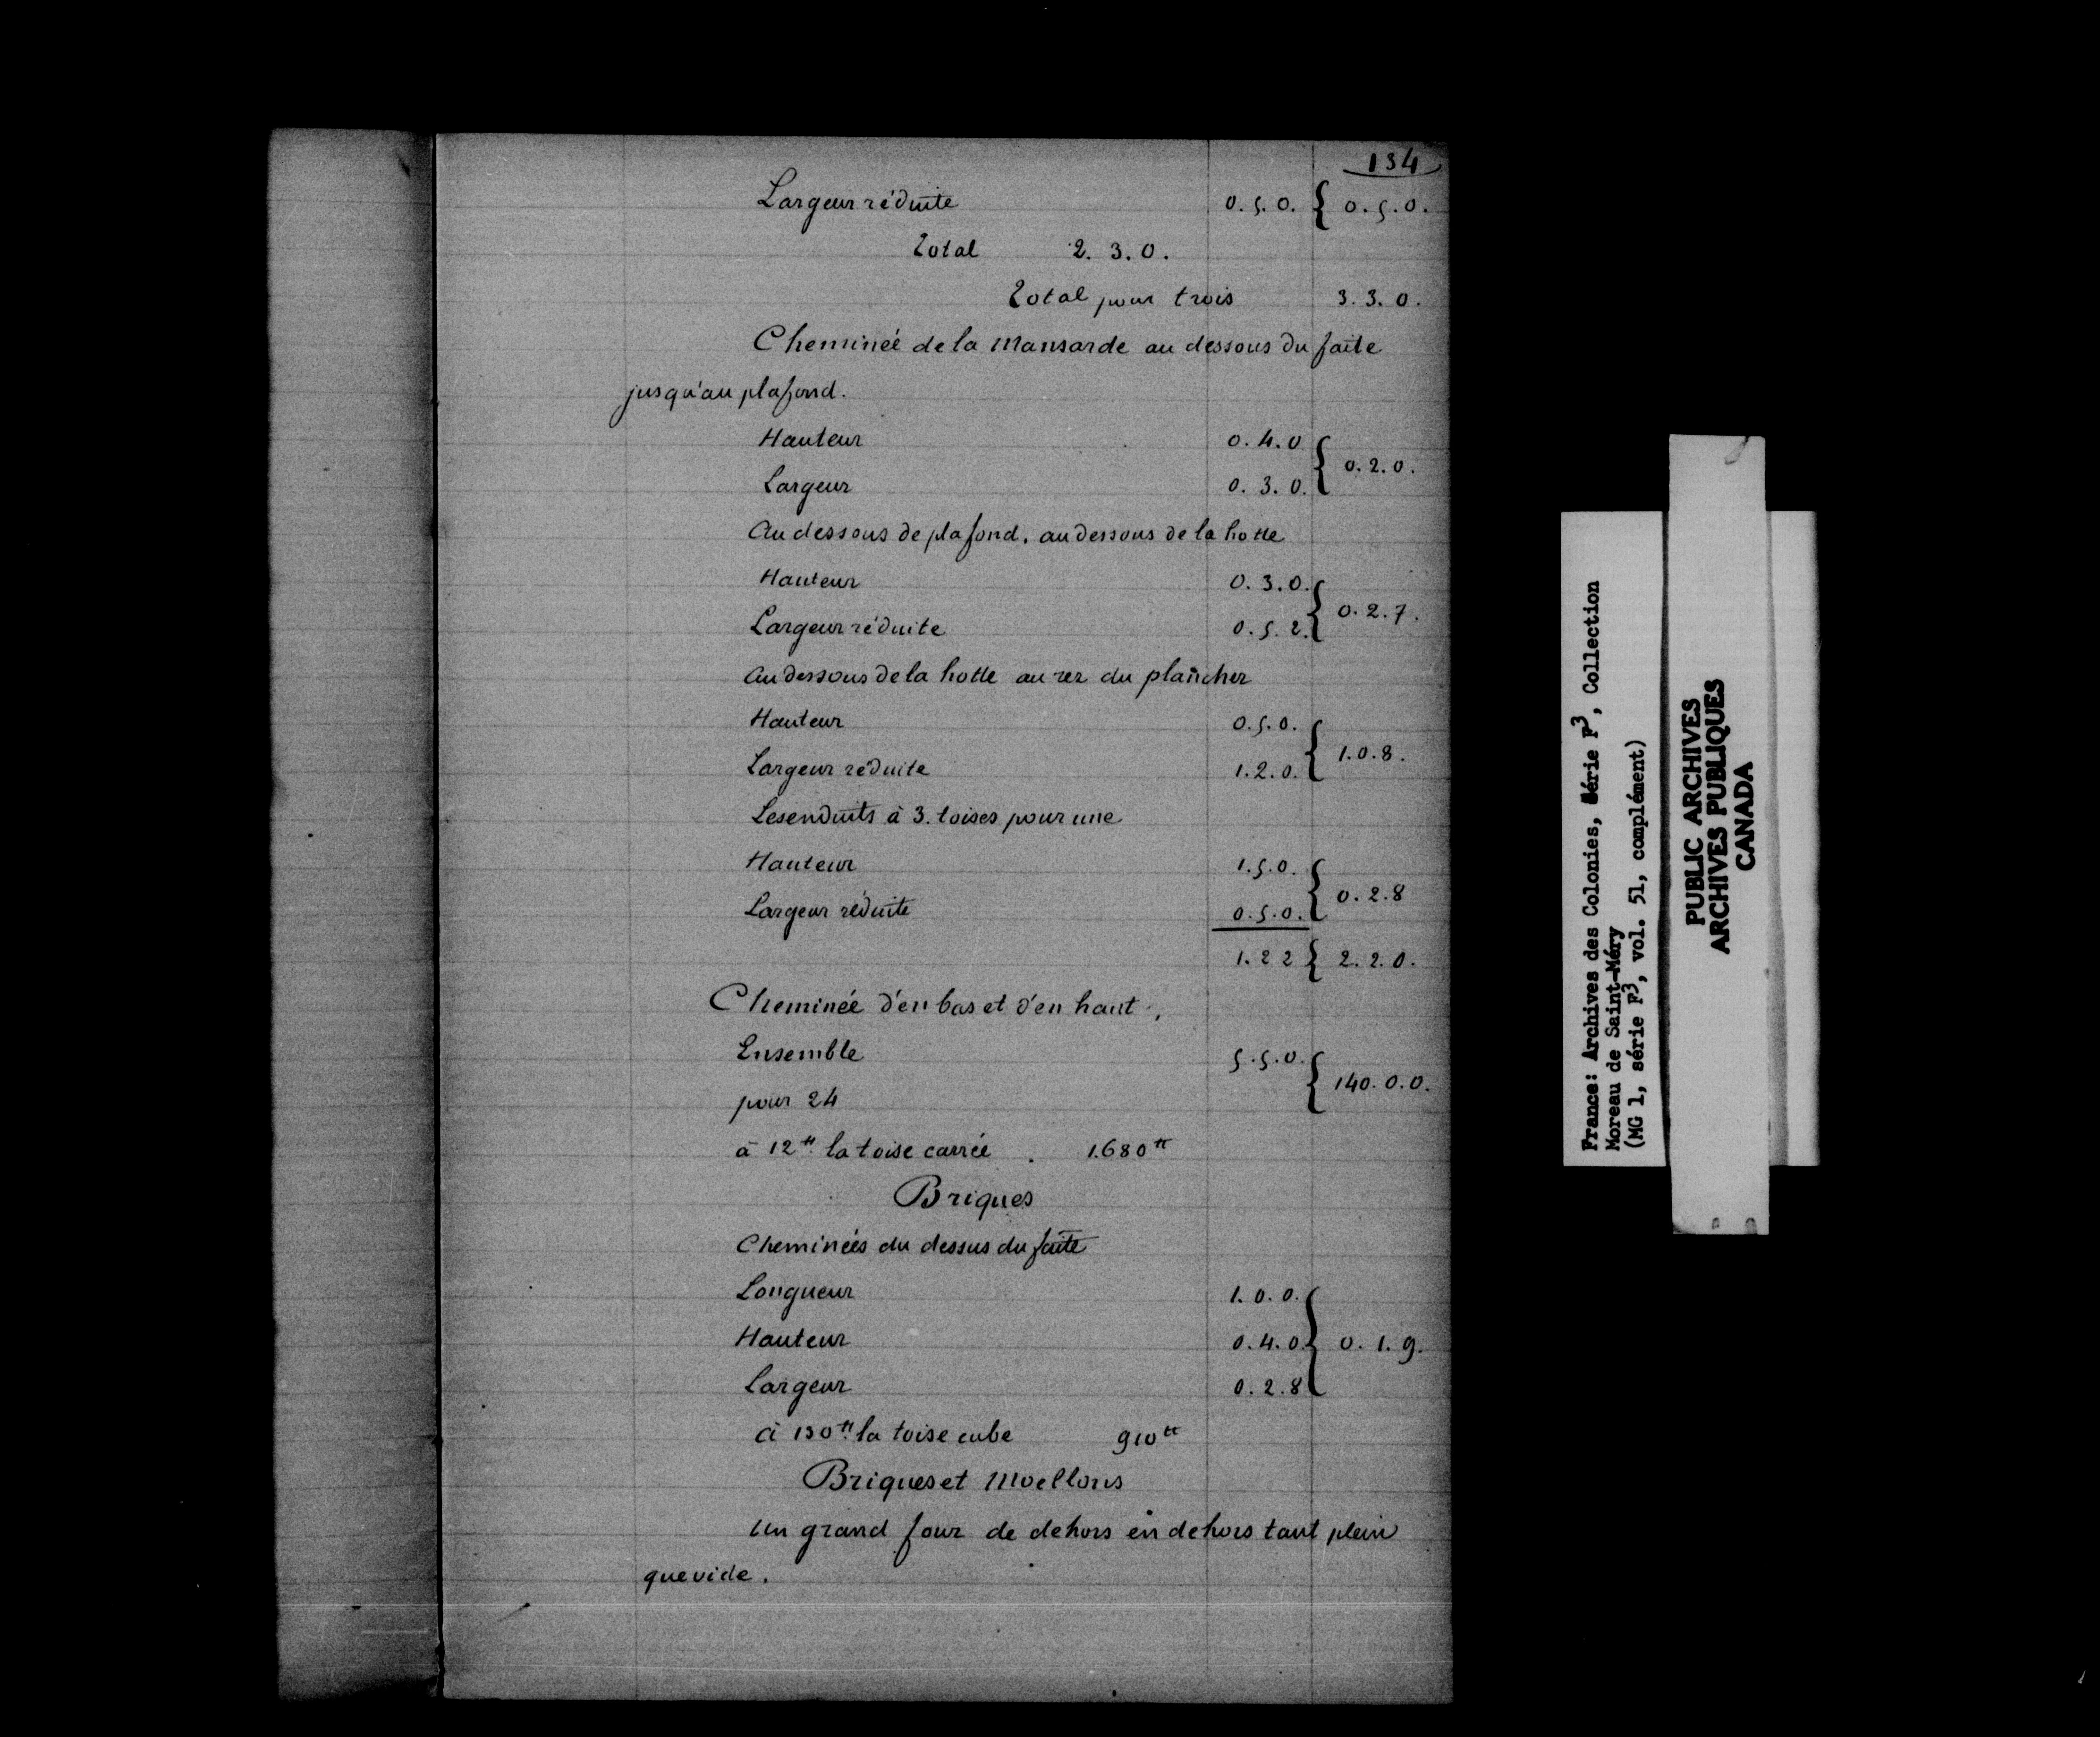 134
Largeur réduite 0.5.0. { 0.5.0.
Total 2.3.0.
Total pour trois 3.3.0.
Cheminée de la Mansarde au dessous du faîte
jusqu'au plafond.
Hauteur 0.4.0
Largeur 0.3.0. { 0.2.0.
Au dessous de plafond. au dessous de la hotte
Hauteur 0.3.0.
Largeur réduite 0.5.2. { 0.2.7.
Au dessous de la hotte au rez du plancher
Hauteur 0.5.0.
Largeur réduite 1.2.0. { 1.0.8.
Les enduits à 3. toises pour une
Hauteur 1.5.0.
Largeur réduite 0.5.0. { 0.2.8
1.22 { 2.2.0.
Cheminée d'en bas et d'en haut,
Ensemble 5.5.0.
pour 24 { 140.0.0.
à 12tt la toise carrée . 1.680tt
Briques
Cheminées du dessus du faîte
Longueur 1.0.0.
Hauteur 0.4.0. { 0.1.9.
Largeur 0.2.8
à 130tt la toise cube 910tt
Briques et Moellons
Un grand four de dehors en dehors tant plein
que vide.
France: Archives des Colonies, Série F3, Collection
Moreau de Saint-Méry
(MG 1, série F3, vol. 51, complément)
PUBLIC ARCHIVES
ARCHIVES PUBLIQUES
CANADA